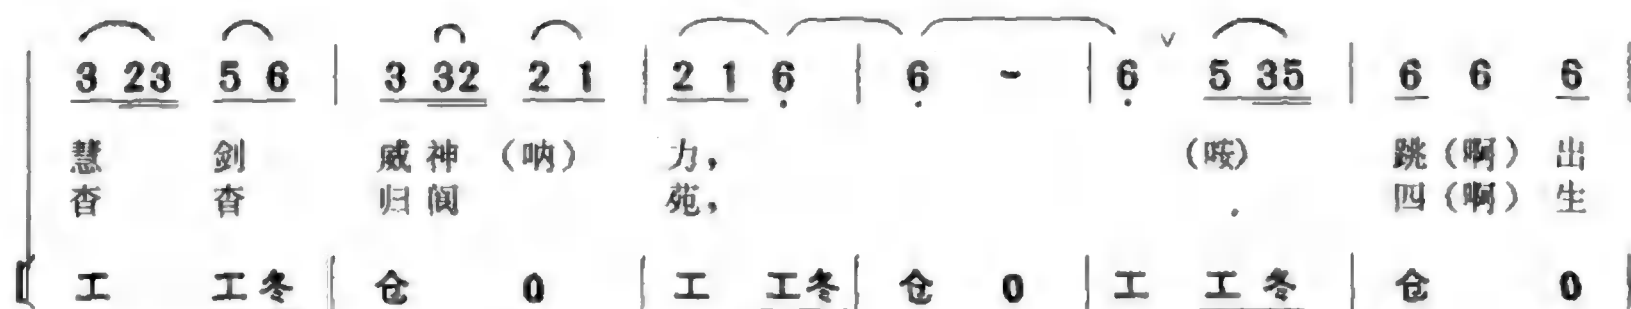 3 23 5 6 | 3 32 2 1 | 2 1 6 | 6 - | 6 ∨ 5 35 | 6 6 6
慧 剑 威 神 (呐) 力, (咹) 跳 (啊) 出
杳 杳 归 阆 苑, 四 (啊) 生
工 工冬 | 仓 0 | 工 工冬 | 仓 0 | 工 工冬 | 仓 0